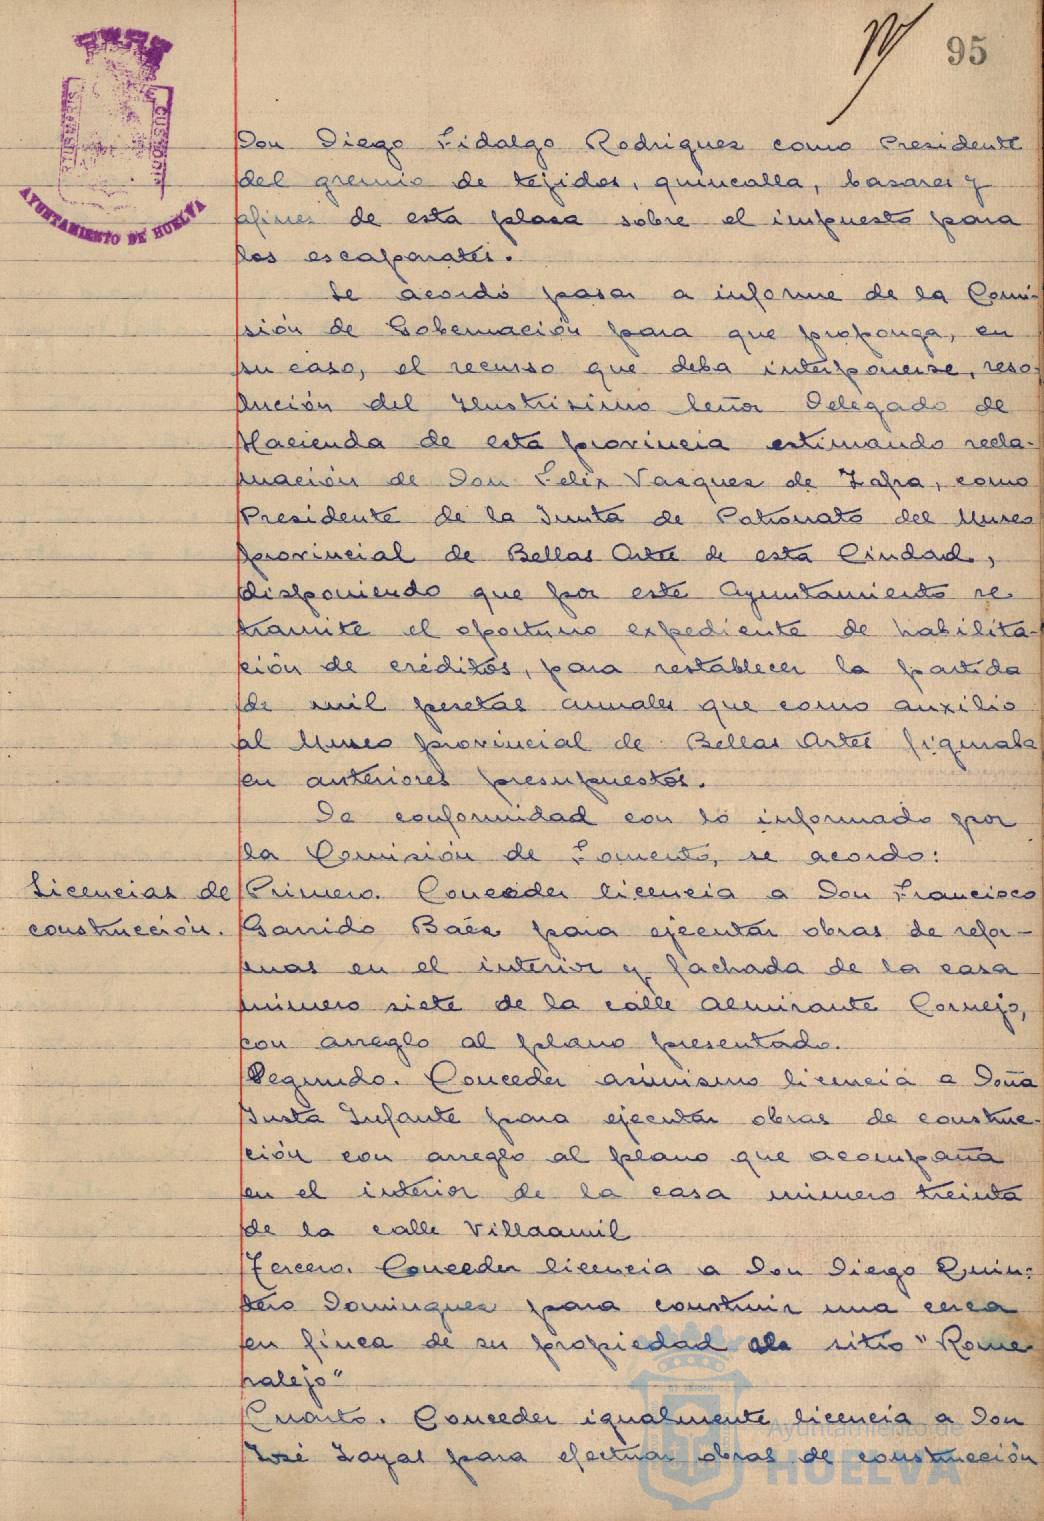 95
PORTUS MARIS
CUSTODIA
AYUNTAMIENTO DE HUELVA
Don Diego Fidalgo Rodriguez como Presidente
del gremio de tejidos, quincalla, bazares y
afines de esta plaza sobre el impuesto para
los escaparates.
Se acordó pasar a informe de la Comi-
sión de Gobernación para que proponga, en
su caso, el recurso que deba interponerse, reso-
lución del Ilustrisimo Señor Delegado de
Hacienda de esta provincia estimando recla-
mación de Don Felix Vazquez de Zafra, como
Presidente de la Junta de Patronato del Museo
provincial de Bellas Artes de esta Ciudad,
disponiendo que por este Ayuntamiento se
tramite el oportuno expediente de habilita-
ción de créditos, para restablecer la partida
de mil pesetas anuales que como auxilio
al Museo provincial de Bellas Artes figuraba
en anteriores presupuestos.
De conformidad con lo informado por
la Comisión de Fomento, se acordo:
Licencias de
construcción.
Primero. Conceder licencia a Don Francisco
Garrido Baéz para ejecutar obras de refor-
mas en el interior y fachada de la casa
número siete de la calle Almirante Cornejo,
con arreglo al plano presentado.
Segundo. Conceder asimismo licencia a Doña
Justa Infante para ejecutar obras de construc-
ción con arreglo al plano que acompaña
en el interior de la casa número treinta
de la calle Villaamil
Tercero. Conceder licencia a Don Diego Quin-
tero Dominguez para construir una cerca
en finca de su propiedad al sitio "Rome-
ralejo"
Cuarto. Conceder igualmente licencia a Don
José Zayas para efectuar obras de construcción
Ayuntamiento de
HUELVA